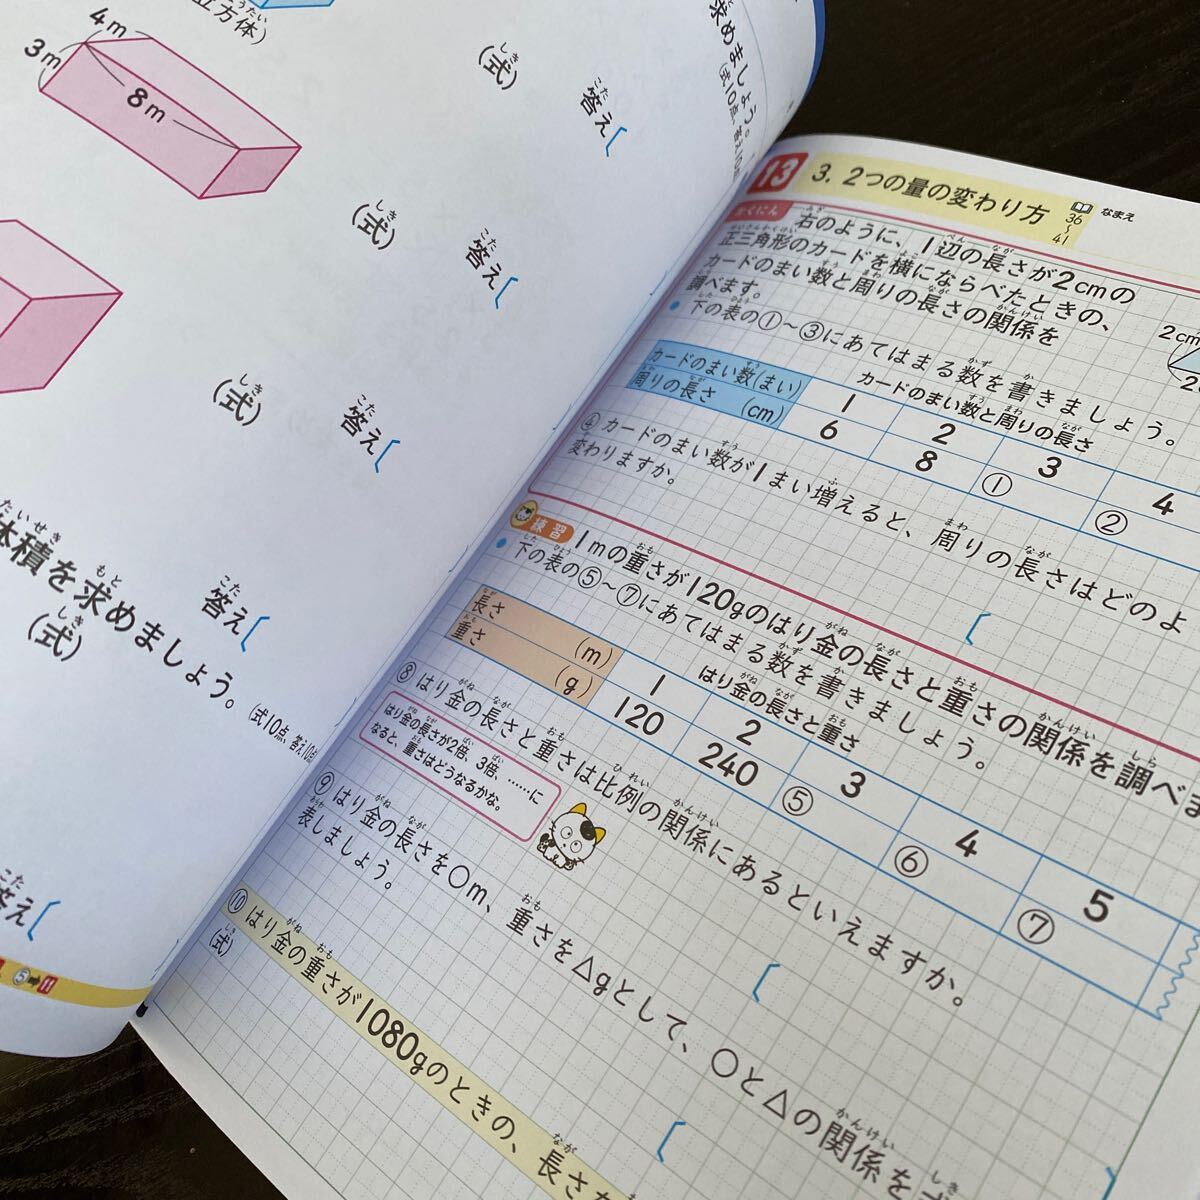 立方体)
4m
3m
8m
(式)
答え[
求めましょう。
(式10点
(式)
答え[
(式)
答え[
体積を求めましょう。(式10点 答え10点
(式)
答え[
答え[
⑤➡11
13 3. 2つの量の変わり方
36〜41
なまえ
かくにん
右のように、1辺の長さが2cmの
正三角形のカードを横にならべたときの、
カードのまい数と周りの長さの関係を
調べます。
2cm
● 下の表の①〜③にあてはまる数を書きましょう。
カードのまい数と周りの長さ
カードのまい数(まい) 1 2 3 4
周りの長さ (cm) 6 8 ① ②
④ カードのまい数が1まい増えると、周りの長さはどのよ
変わりますか。
[
練習
1mの重さが120gのはり金の長さと重さの関係を調べま
● 下の表の⑤〜⑦にあてはまる数を書きましょう。
はり金の長さと重さ
長さ (m) 1 2 3 4 5
重さ (g) 120 240 ⑤ ⑥ ⑦
⑧ はり金の長さと重さは比例の関係にあるといえますか。
はり金の長さが2倍、3倍、……に
なると、重さはどうなるかな。
[
⑨ はり金の長さを○m、重さを△gとして、○と△の関係を
表しましょう。
[
⑩ はり金の重さが1080gのときの、長さ
(式)